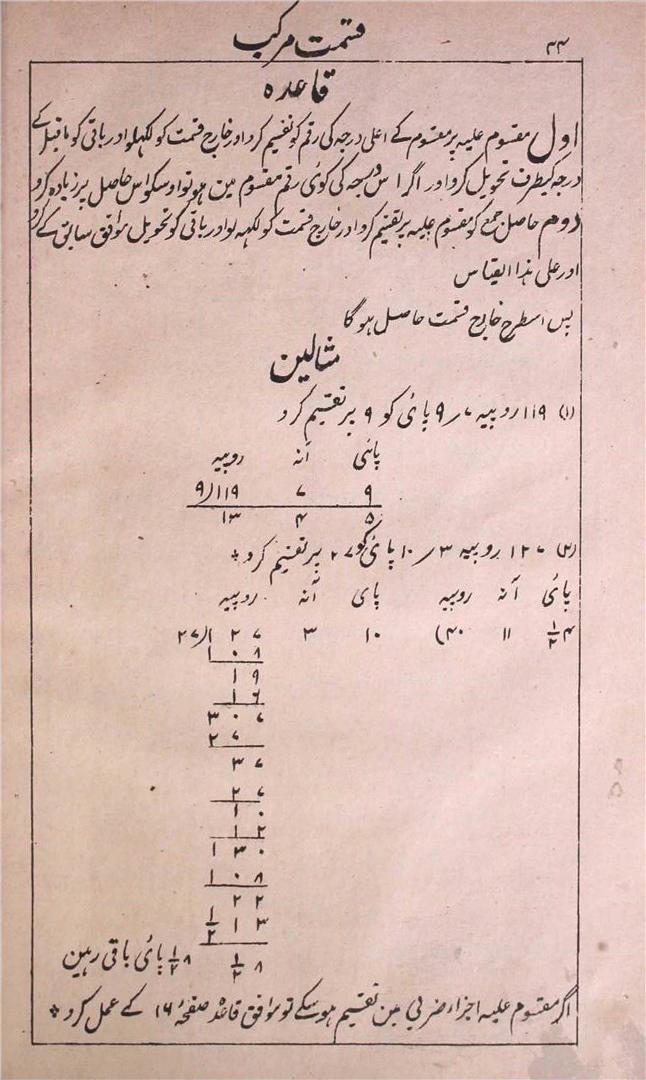 ۴۴ قسمت مرکب
قاعدہ
اول مقسوم علیہ پر مقسوم کے اعلی درجہ کی رقم کو تقسیم کرو اور خارج قسمت کو لکہلو اور باقی کو ماقبل کے
درجہ کیطرف تحویل کرو اور اگر اس درجہ کی کوئی رقم مقسوم مین ہو تو اوسکو اس حاصل پر زیادہ کرو
دوم حاصل جمع کو مقسوم علیہ پر تقسیم کرو اور خارج قسمت کو لکہہ لو اور باقی کو تحویل موافق سابق کے کرو
اور علی ہذا القیاس
پس اسطرح خارج قسمت حاصل ہو گا
مثالین
(۱) ۱۱۹ روپیہ ۷ ر ۹ پائی کو ۹ پر تقسیم کرو
پائی آنہ روپیہ
۹ ۷ ۱۱۹(۹
۵ ۴ ۱۳
(۲) ۱۲۷ روپیہ ۳ ر ۱۰ پائی کو ۲۷ پر تقسیم کرو
پائی آنہ روپیہ پای آنہ روپیہ
۴ ۱/۲ ۱۱ (۴ ۱۰ ۳ ۱۲۷(۲۷
۱۰۸
۱۹
۱۶
۳۰۷
۲۷
۳۷
۲۷
۱۰
۱۲
۱۳۰
۱۰۸
۲۲
۱۳ ۱/۲
۸ ۱/۲ ۸ ۱/۲ پائی باقی رہین
اگر مقسوم علیہ اجزاء ضربی مین تقسیم ہو سکے تو موافق قاعدہ صفحہ ۱۶ کے عمل کرو